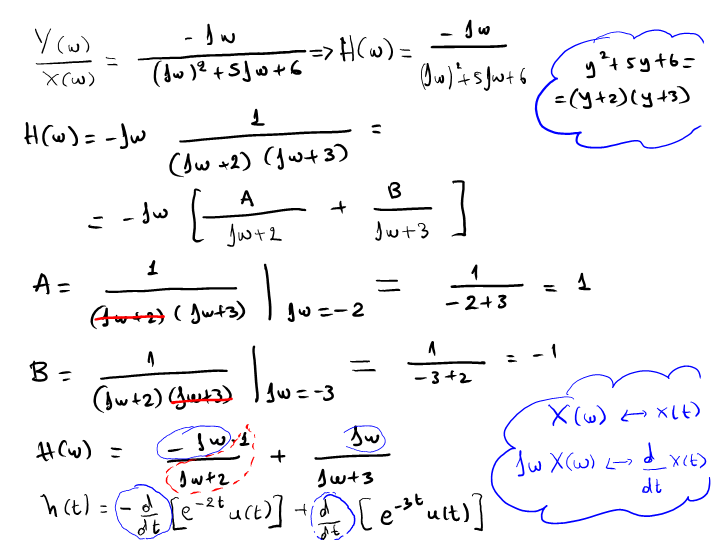 Y(ω)/X(ω) = -jω/((jω)²+5jω+6) => H(ω) = -jω/((jω)²+5jω+6)
y²+5y+6=
=(y+2)(y+3)
H(ω) = -jω 1/((jω+2)(jω+3)) =
= -jω [A/(jω+2) + B/(jω+3)]
A = 1/((jω+2)(jω+3)) | jω=-2 = 1/(-2+3) = 1
B = 1/((jω+2)(jω+3)) | jω=-3 = 1/(-3+2) = -1
X(ω) ↔ x(t)
jω X(ω) ↔ d/dt x(t)
H(ω) = -jω·1/(jω+2) + jω/(jω+3)
h(t) = -d/dt [e^{-2t} u(t)] + d/dt [e^{-3t} u(t)]